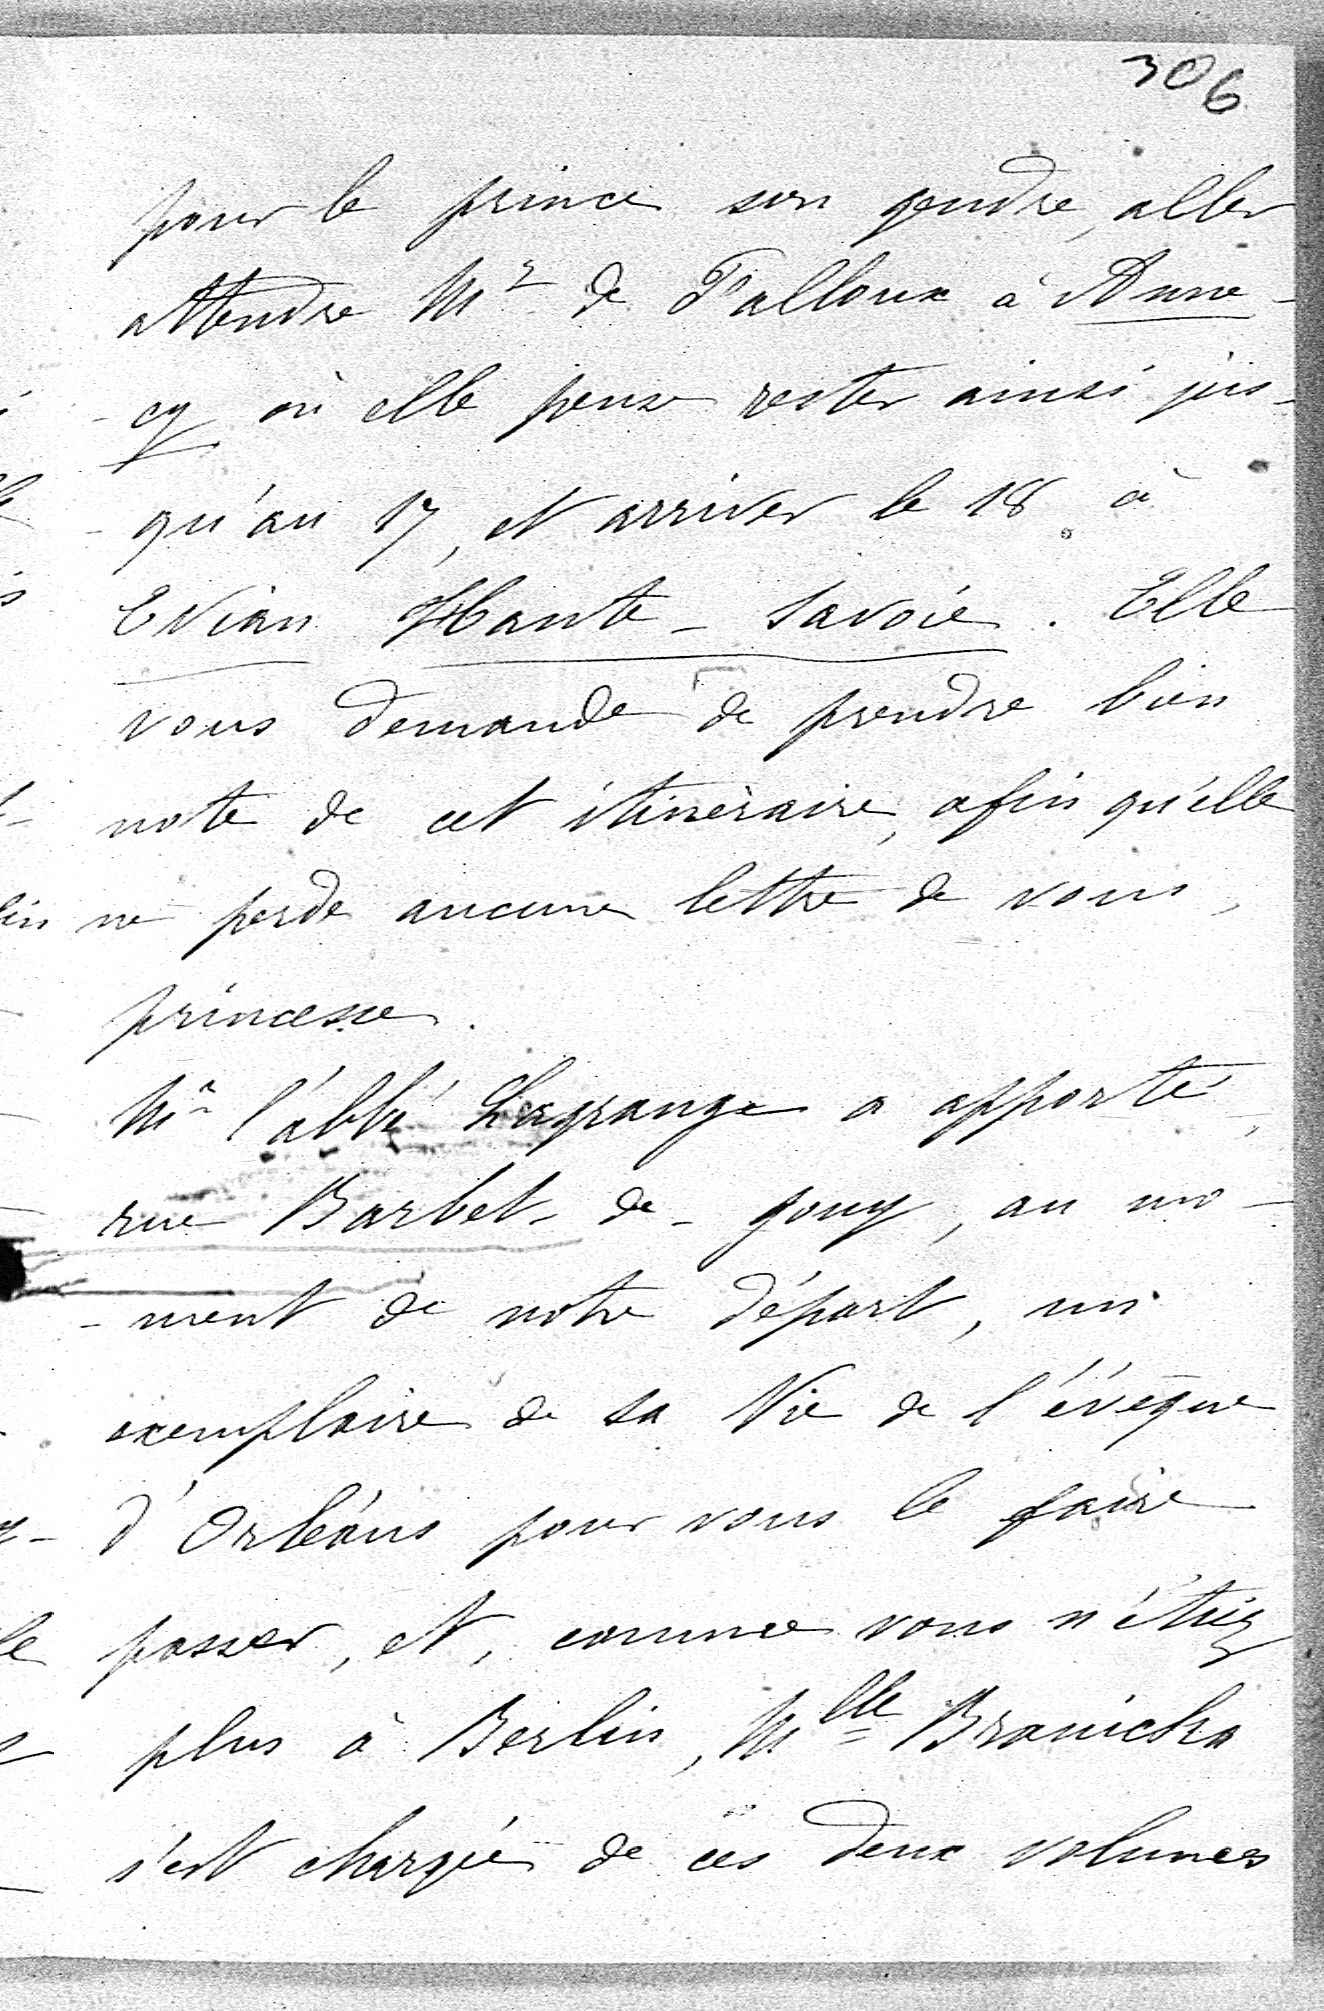 306
pour le prince son gendre, aller
attendre Mr de Falloux à Anne-
-cy où elle pense rester ainsi jus-
-qu'au 17, et arriver le 18 à
Evian Haute-Savoie. Elle
vous demande de prendre bien
note de cet itinéraire, afin qu'elle
ne perde aucune lettre de vous,
princesse.
Mr l'abbé Lagrange a apporté,
rue Barbet-de-Jouy, au mo-
-ment de notre départ, un
exemplaire de sa Vie de l'évêque
d'Orléans pour vous le faire
passer, et, comme vous n'étiez
plus à Berlin, Mlle Branicka
s'est chargée de ces deux volumes